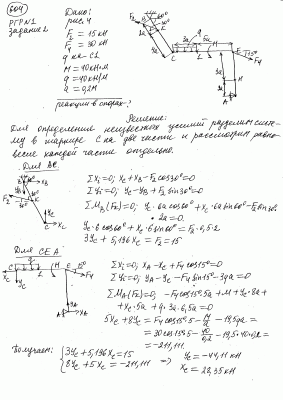 604
РГР N1
Задание 2
Дано:
рис. 4
F₂ = 15 кН
F₄ = 30 кН
q на CL
M = 40 кН·м
q = 40 н/м
a = 0,2 м
реакции в опорах - ?
Решение:
Для определения неизвестных усилий разделим систе-
му в шарнире С на две части и рассмотрим равно-
весие каждой части отдельно.
Для BC.
Σxᵢ=0; xc + xB - F₂cos30°=0
Σyᵢ=0; yc - yB + F₂sin30°=0
ΣMB(Fₖ)=0; yc·6a cos60° + xc·6a sin60° - F₂sin30°·
·2a = 0.
yc·6cos60° + xc·6sin60° = F₂·0,5·2
3yc + 5,196xc = F₂ = 15
Для CEA
Σxᵢ=0; xA - xc + F₄cos15°=0
Σyᵢ=0; yA - yc - F₄sin15° - 3qa = 0
ΣMA(Fₖ)=0; -F₄cos15°·5a + M + yc·8a +
+ xc·5a + q·3a·6,5a = 0
5xc + 8yc = F₄cos15°·5 - M/a - 19,5qa =
= 30cos15°·5 - 40/0,2 - 19,5·40·0,2 =
= -211,111.
Получаем:
{3yc + 5,196xc = 15
{8yc + 5xc = -211,111
⇒ yc = -44,11 кН
xc = 28,35 кН